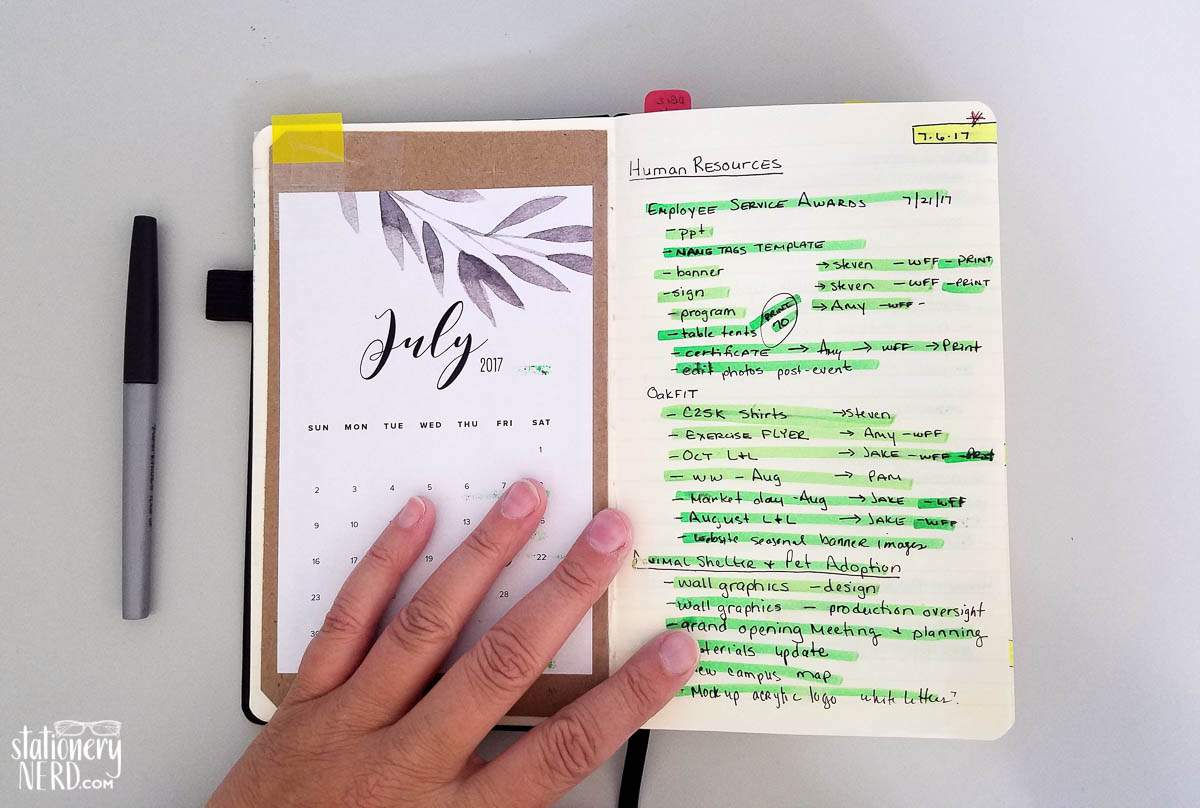 July
2017
SUN MON TUE WED THU FRI SAT
1
2 3 4 5 6 7
9 10 13
16 19 22
23 28
7.6.17
Human Resources
Employee Service Awards 7/21/17
- ppt
- NAME TAGS TEMPLATE
- banner → steven - WFF - PRINT
- sign → steven - WFF - PRINT
- program → Amy - WFF -
- table tents PRINT 70
- certificate → Amy → WFF → Print
- edit photos post-event
OakFit
- C25K Shirts → Steven
- Exercise Flyer → Amy - WFF
- Oct L+L → JAKE - WFF - Print
- WW - Aug → PAM
- Market day - Aug → JAKE - WFF
- August L+L → JAKE - WFF
- website seasonal banner images
Animal Shelter + Pet Adoption
- wall graphics - design
- wall graphics - production oversight
- grand opening Meeting + planning
update
campus map
- Mock up acrylic logo white letters?
stationery
NERD.COM